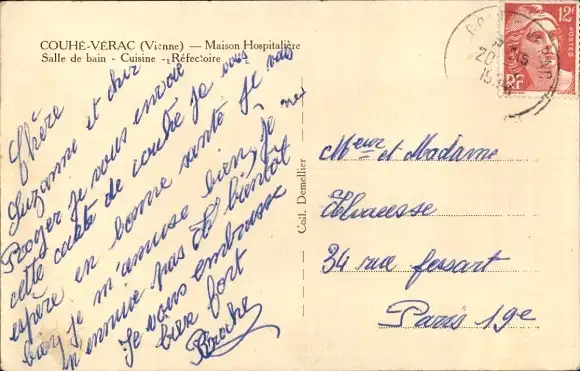 COUHÉ-VÉRAC (Vienne) — Maison Hospitalière
Salle de bain - Cuisine - Réfectoire
12F
POSTES
RF
20
Chère
Suzanne et cher
Roger je vous envoie
cette carte de couhé je vous
espère en bonne santé je vais
bien je m'amuse bien je
n'ennuie pas et bientôt
Je vous embrasse
bien fort
Coll. Demellier
Meur et Madame
34 rue fessart
Paris 19e